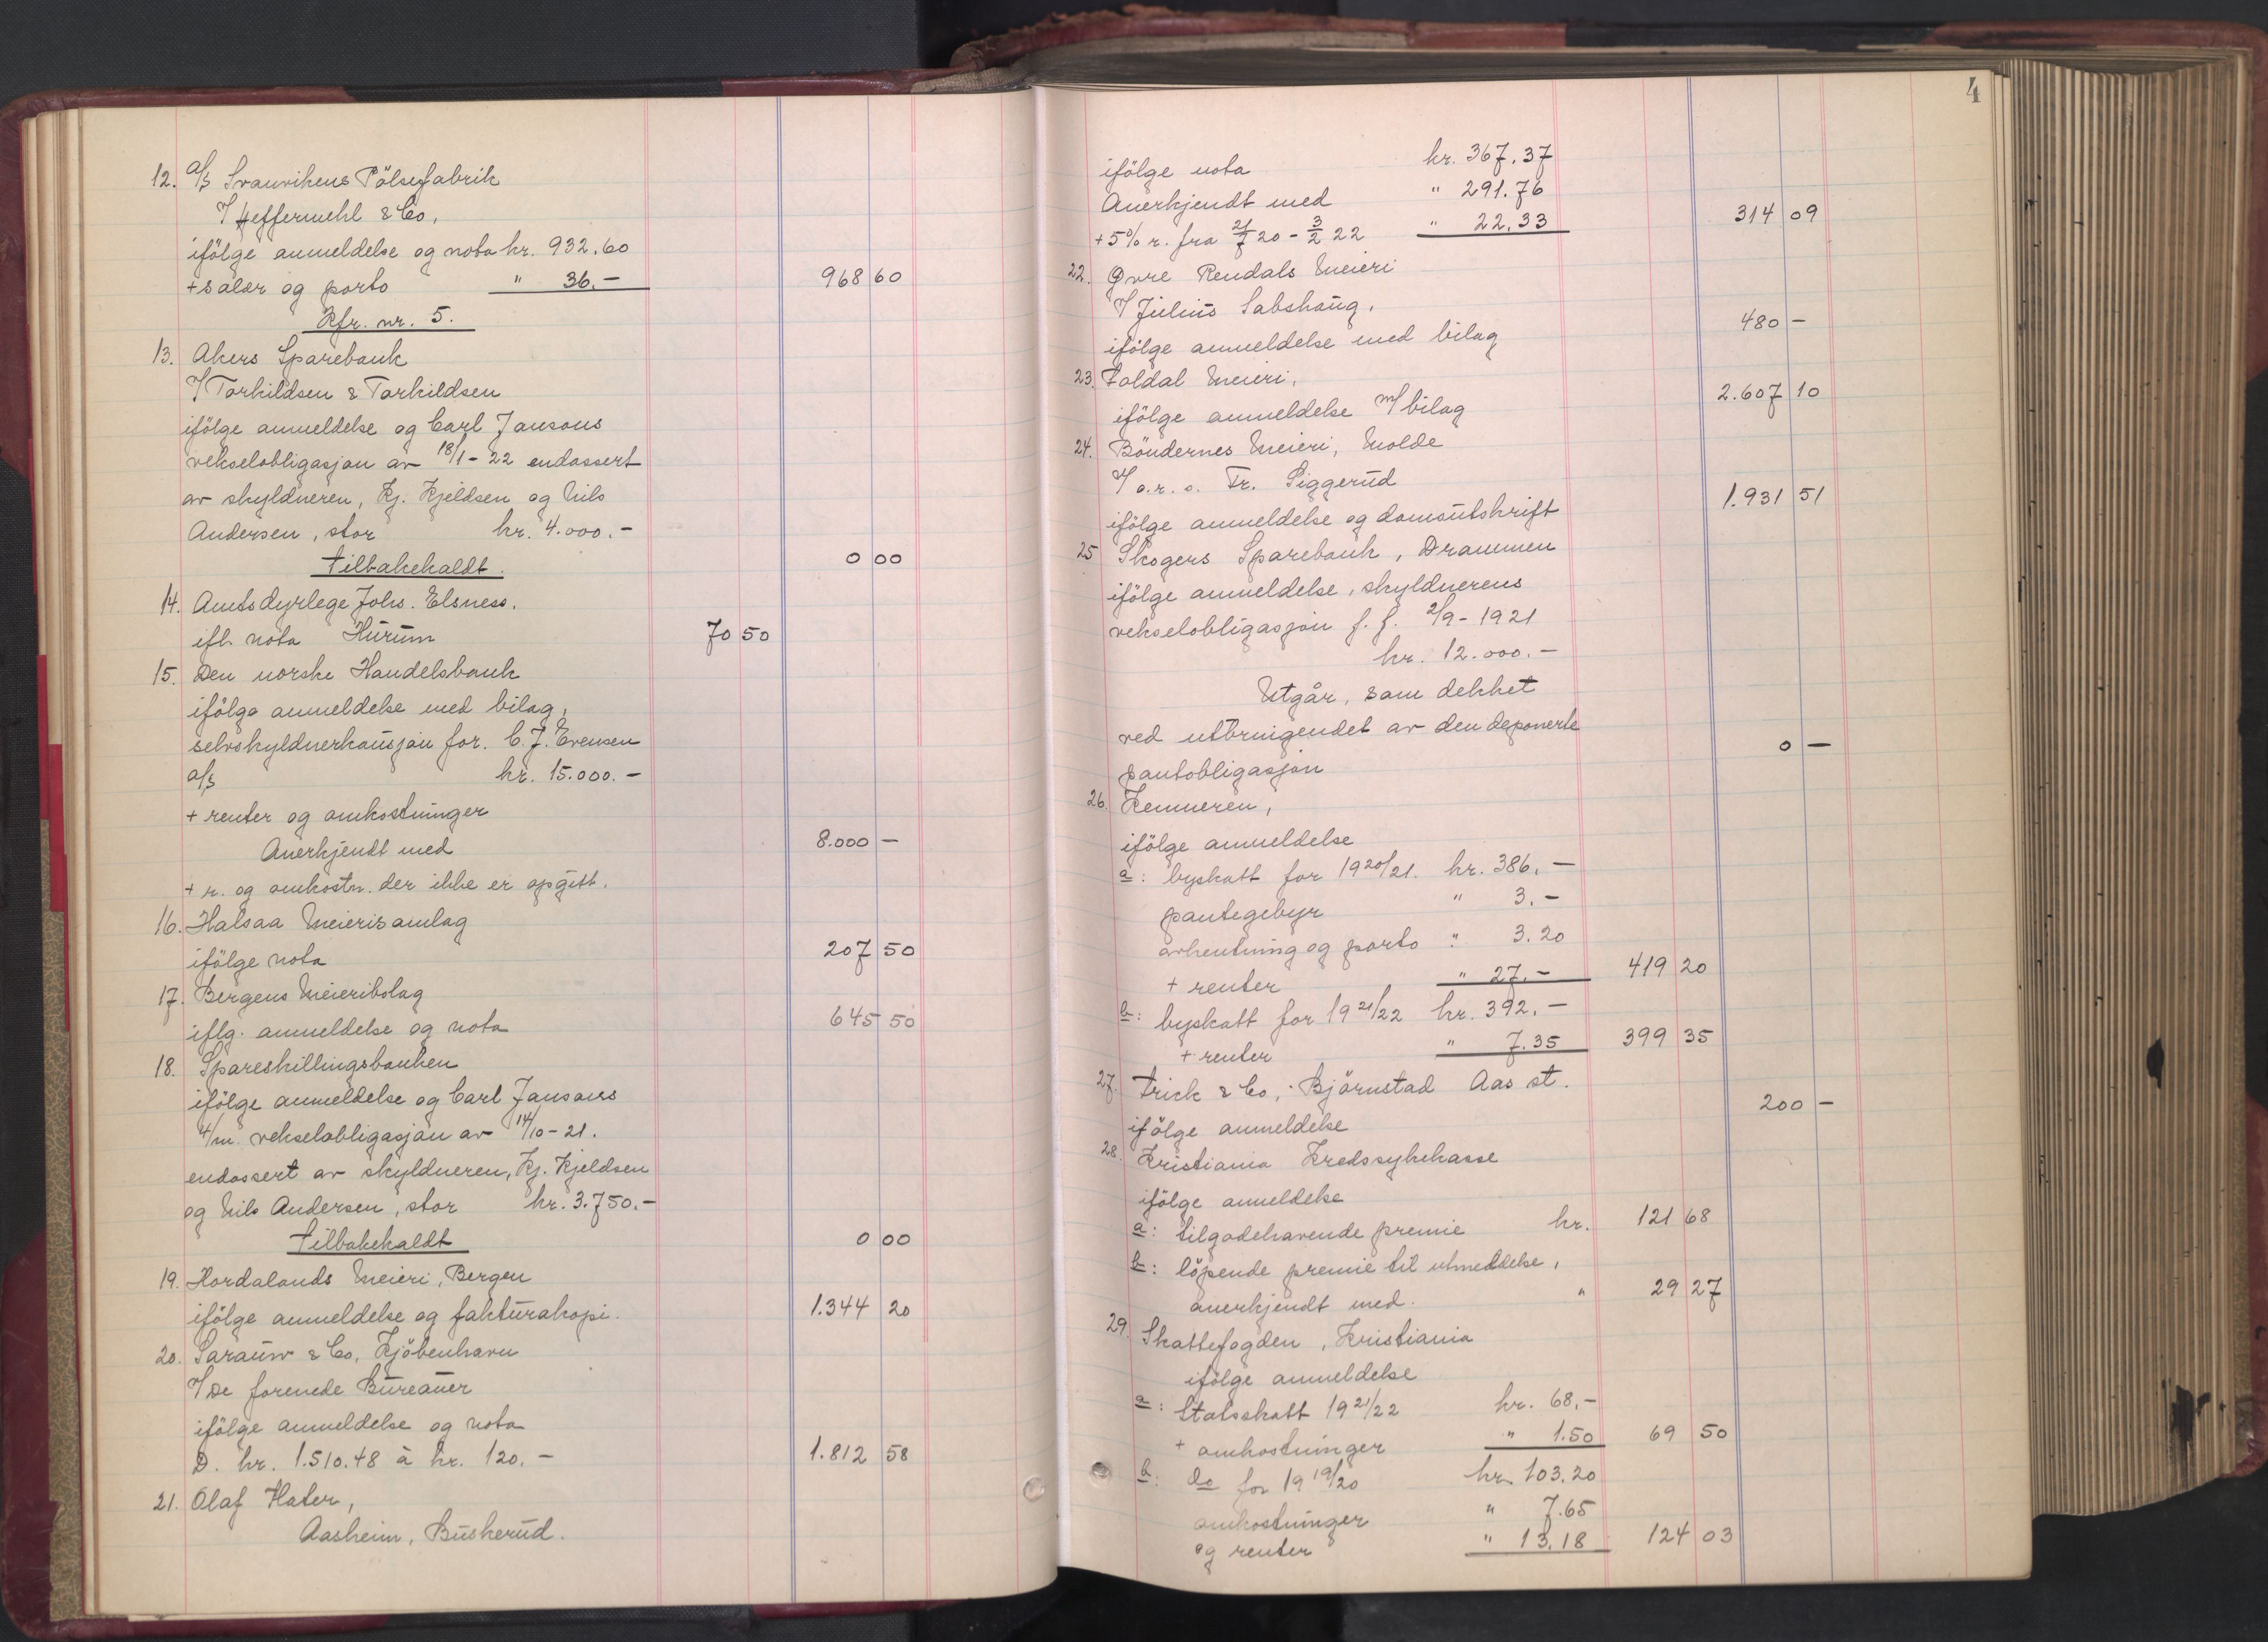 12. A/S Svanvikens Pölsefabrik
v/ Heffermehl & Co.
ifölge anmeldelse og nota kr. 932.60
+ salær og porto " 36.– 968 60
Kfr. nr. 5.
13. Akers Sparebank
v/ Torkildsen & Torkildsen
ifölge anmeldelse og Carl Jansons
vekselobligasjon av 18/1–22 endossert
av skyldneren, Kj. Kjeldsen og Nils
Andersen, stor kr. 4.000.–
tilbakekaldt. 0 00
14. Amtsdyrlege Johs. Elsness.
ifl. nota Hurum 70 50
15. Den norske Handelsbank
ifölge anmeldelse med bilag,
selvskyldnerkausjon for. C. J. Evensen
A/S kr. 15.000.–
+ renter og omkostninger
Anerkjendt med 8.000 –
+ r. og omkostn. der ikke er opgitt.
16. Halsaa Meierisamlag
ifölge nota 207 50
17. Bergens Meieribolag
iflg. anmeldelse og nota 645 50
18. Spareskillingsbanken
ifölge anmeldelse og Carl Jansons
4/m. vekselobligasjon av 14/10–21.
endossert av skyldneren, Kj. Kjeldsen
og Nils Andersen, stor kr. 3.750.–
tilbakekaldt 0 00
19. Hordalands Meieri, Bergen
ifölge anmeldelse og fakturakopi. 1.344 20
20. Sarauw & Co, Kjöbenhavn
v/ De forenede Bureauer
ifölge anmeldelse og nota
D. kr. 1.510.48 à kr. 120.– 1.812 58
21. Olaf Hater,
Aasheim, Buskerud.
4
ifölge nota kr. 367.37
Anerkjendt med " 291.76
+ 5% r. fra 21/7 20 – 3/2 22 " 22.33 314 09
22. Øvre Rendals Meieri
v/ Julius Sabshaug.
ifölge anmeldelse med bilag 480 –
23. Foldal Meieri,
ifölge anmeldelse m/ bilag 2.607 10
24. Böndernes Meieri, Molde
v/ o.r.s. Fr. Siggerud
ifölge anmeldelse og domsutskrift 1.931 51
25 Skogers Sparebank, Drammen
ifölge anmeldelse, skyldnerens
vekselobligasjon f. f. 2/9–1921
kr. 12.000.–
Utgår, som dekket
ved utbringendet av den deponerte
pantobligasjon 0 –
26. Kemneren,
ifölge anmeldelse
a: byskatt for 1920/21. kr. 386.–
pantegebyr " 3.–
avhentning og porto " 3.20
+ renter " 27.– 419 20
b: byskatt for 1921/22 kr. 392.–
+ renter " 7.35 399 35
27. Frick & Co, Björnstad Aas st.
ifölge anmeldelse 200 –
28. Kristiania Kredssykekasse
ifölge anmeldelse
a: tilgodehavende premie kr. 121 68
b: löpende premie til utmeldelse,
anerkjendt med. " 29 27
29. Skattefogden, Kristiania
ifölge anmeldelse
a: Statsskatt 1921/22 kr. 68.–
+ omkostninger " 1.50 69 50
b: do for 1919/20 kr. 103.20
omkostninger " 7.65
og renter " 13.18 124 03